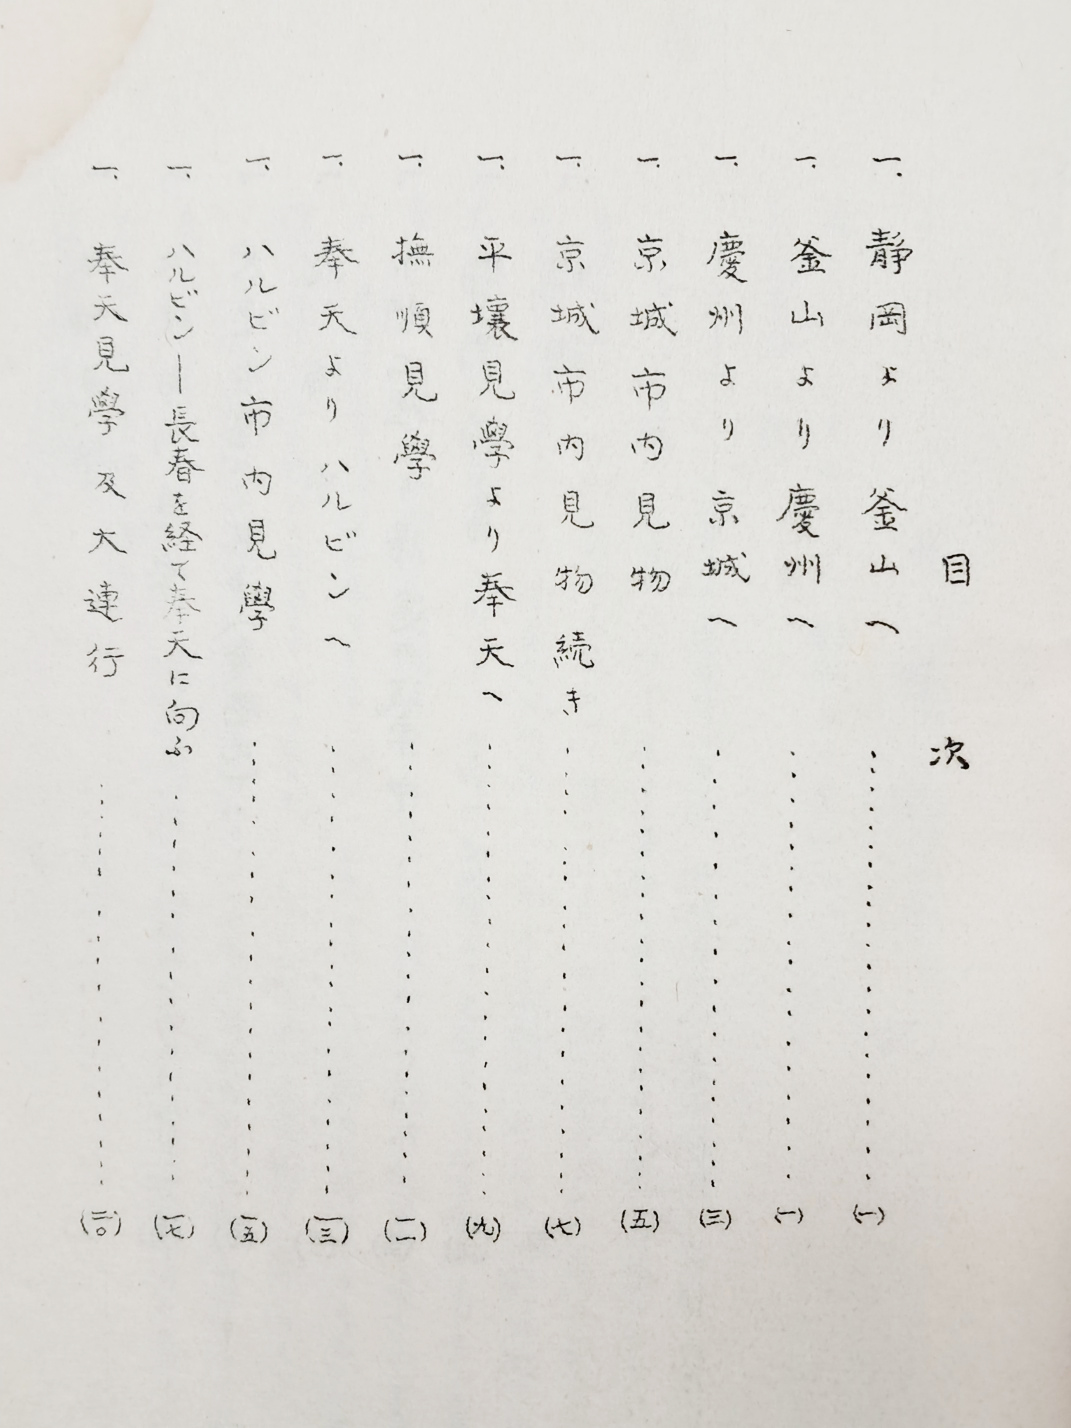 目次
一、静岡より釜山へ……(一)
一、釜山より慶州へ……(一)
一、慶州より京城へ……(三)
一、京城市内見物……(五)
一、京城市内見物続き……(七)
一、平壌見學より奉天へ……(九)
一、撫順見學……(一一)
一、奉天よりハルビンへ……(一三)
一、ハルビン市内見學……(一五)
一、ハルビン―長春を経て奉天に向ふ……(一七)
一、奉天見學及大連行……(二〇)